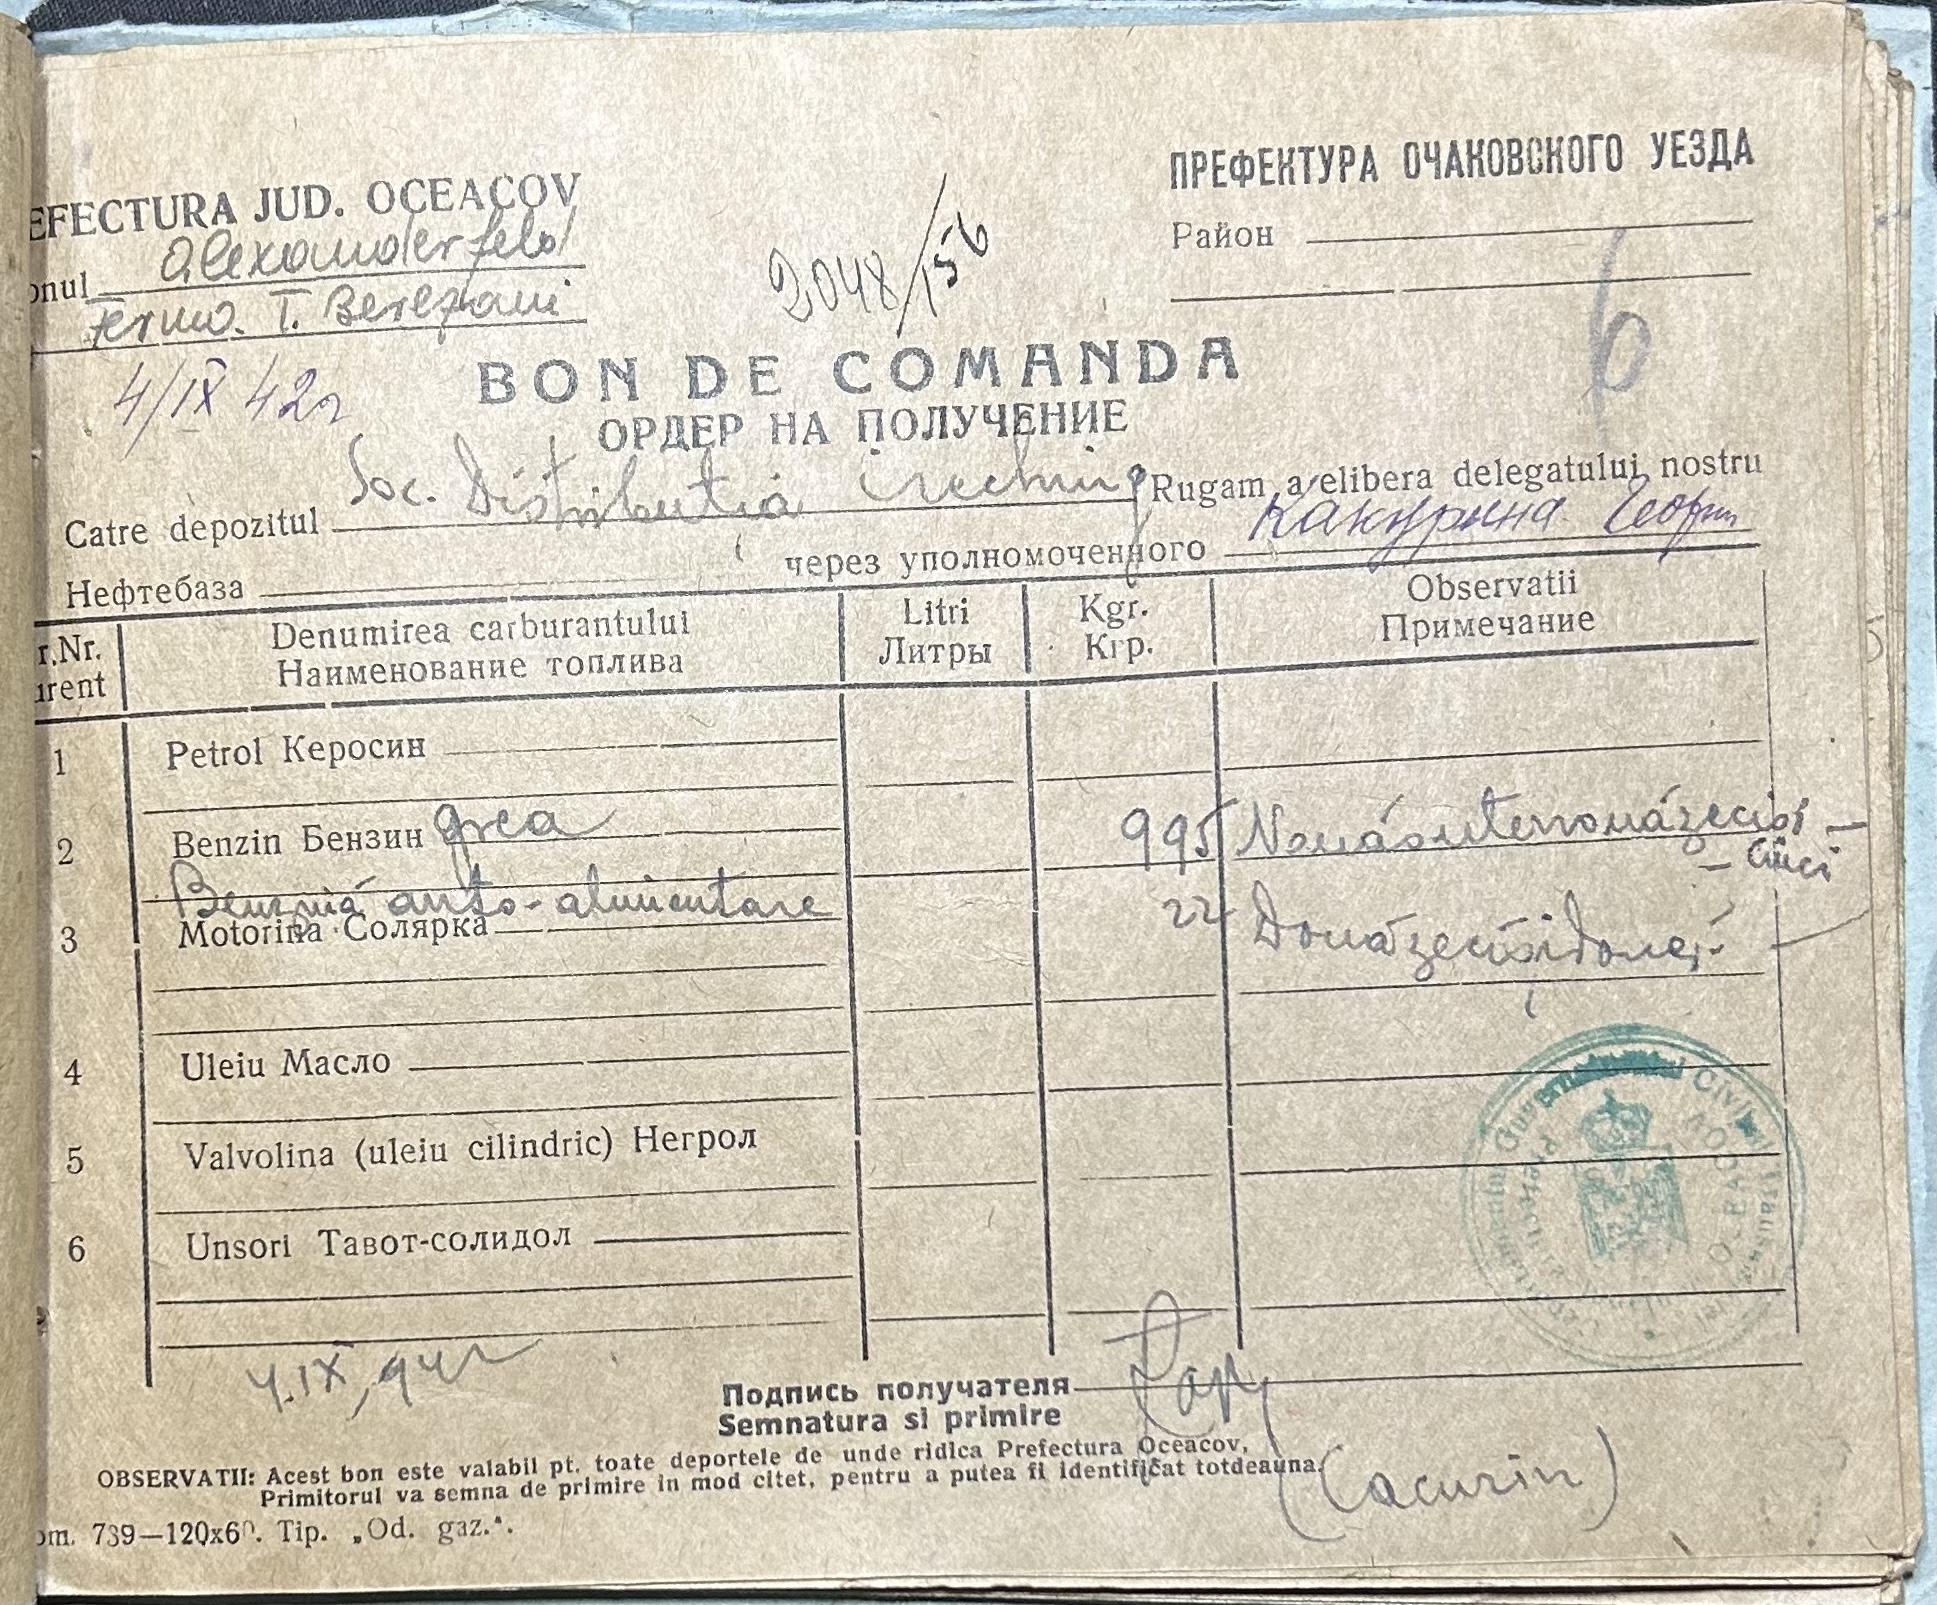 EFECTURA JUD. OCEACOV
ПРЕФЕКТУРА ОЧАКОВСКОГО УЕЗДА
onul Alexanderfeld
Ferma T. Berezani
Район
2048/156
6
4/IX 42г
BON DE COMANDA
ОРДЕР НА ПОЛУЧЕНИЕ
Catre depozitul Soc. Distributia Rugam a elibera delegatului nostru
Нефтебаза через уполномоченного Какурина Георги
r.Nr. Denumirea carburantului Litri Kgr. Observatii
urent Наименование топлива Литры Кгр. Примечание
1 Petrol Керосин
2 Benzin Бензин grea 995 Nouăsutenouăzecişi
– cinci
Benzină auto-alimentare 22 Douăzecişidouă
3 Motorina Солярка
4 Uleiu Масло
5 Valvolina (uleiu cilindric) Негрол
6 Unsori Тавот-солидол
Guvernamantul Civil al Transnistriei
Prefectura
OCEACOV
4.IX,942
Подпись получателя
Semnatura si primire
(Cacurin)
OBSERVATII: Acest bon este valabil pt. toate deportele de unde ridica Prefectura Oceacov,
Primitorul va semna de primire in mod citet, pentru a putea fi identificat totdeauna.
om. 739—120x60. Tip. „Od. gaz.".